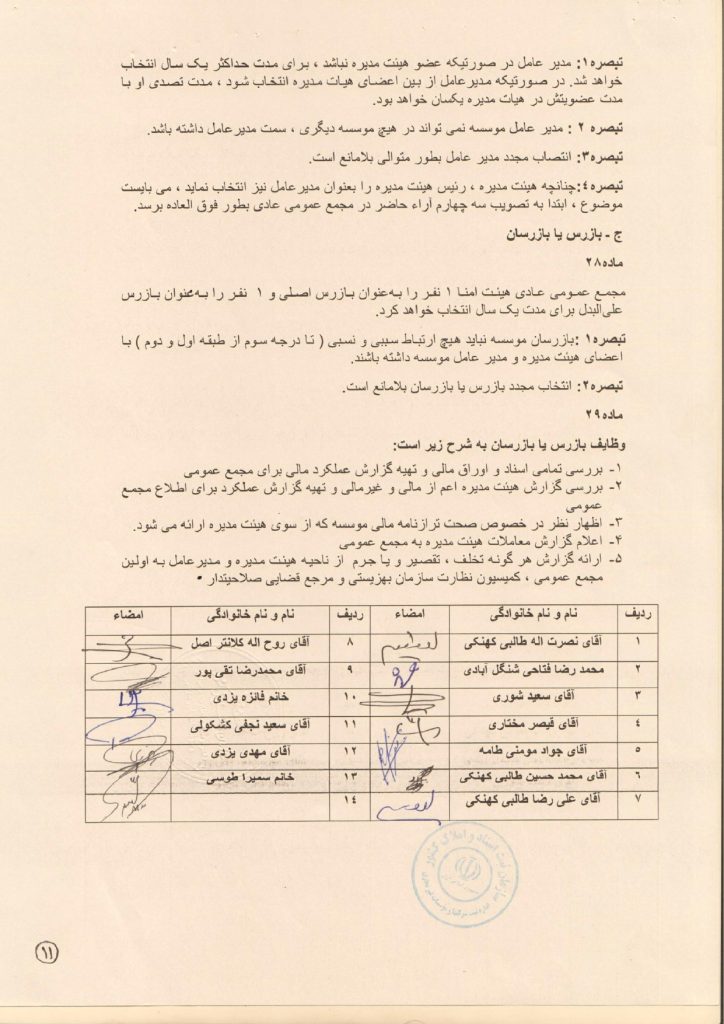 تبصره۱: مدیر عامل در صورتیکه عضو هیئت مدیره نباشد ، برای مدت حداکثر یک سال انتخاب
خواهد شد. در صورتیکه مدیرعامل از بین اعضای هیات مدیره انتخاب شود ، مدت تصدی او با
مدت عضویتش در هیات مدیره یکسان خواهد بود.
تبصره ۲ : مدیر عامل موسسه نمی تواند در هیچ موسسه دیگری ، سمت مدیرعامل داشته باشد.
تبصره۳: انتصاب مجدد مدیر عامل بطور متوالی بلامانع است.
تبصره٤:چنانچه هیئت مدیره ، رئیس هیئت مدیره را بعنوان مدیرعامل نیز انتخاب نماید ، می بایست
موضوع ، ابتدا به تصویب سه چهارم آراء حاضر در مجمع عمومی عادی بطور فوق العاده برسد.
ج - بازرس یا بازرسان
ماده۲۸
مجمع عمومی عادی هیئت امنا ۱ نفر را به‌عنوان بازرس اصلی و ۱ نفر را به‌عنوان بازرس
علی‌البدل برای مدت یک سال انتخاب خواهد کرد.
تبصره۱ :بازرسان موسسه نباید هیچ ارتباط سببی و نسبی ( تا درجه سوم از طبقه اول و دوم ) با
اعضای هیئت مدیره و مدیر عامل موسسه داشته باشند.
تبصره۲: انتخاب مجدد بازرس یا بازرسان بلامانع است.
ماده۲۹
وظایف بازرس یا بازرسان به شرح زیر است:
۱- بررسی تمامی اسناد و اوراق مالی و تهیه گزارش عملکرد مالی برای مجمع عمومی
۲- بررسی گزارش هیئت مدیره اعم از مالی و غیرمالی و تهیه گزارش عملکرد برای اطلاع مجمع
عمومی
۳- اظهار نظر در خصوص صحت ترازنامه مالی موسسه که از سوی هیئت مدیره ارائه می شود.
٤- اعلام گزارش معاملات هیئت مدیره به مجمع عمومی
٥- ارائه گزارش هر گونه تخلف ، تقصیر و یا جرم از ناحیه هیئت مدیره و مدیرعامل به اولین
مجمع عمومی ، کمیسیون نظارت سازمان بهزیستی و مرجع قضایی صلاحیتدار .
ردیف نام و نام خانوادگی امضاء ردیف نام و نام خانوادگی امضاء
۱ آقای نصرت اله طالبی کهنکی ۸ آقای روح اله کلانتر اصل
۲ محمد رضا فتاحی شنگل آبادی ۹ آقای محمدرضا تقی پور
۳ آقای سعید شوری ۱۰ خانم فائزه یزدی
٤ آقای قیصر مختاری ۱۱ آقای سعید نجفی کشکولی
٥ آقای جواد مومنی طامه ۱۲ آقای مهدی یزدی
٦ آقای محمد حسین طالبی کهنکی ۱۳ خانم سمیرا طوسی
۷ آقای علی رضا طالبی کهنکی ۱٤
سازمان ثبت اسناد و املاک کشور
۱۱